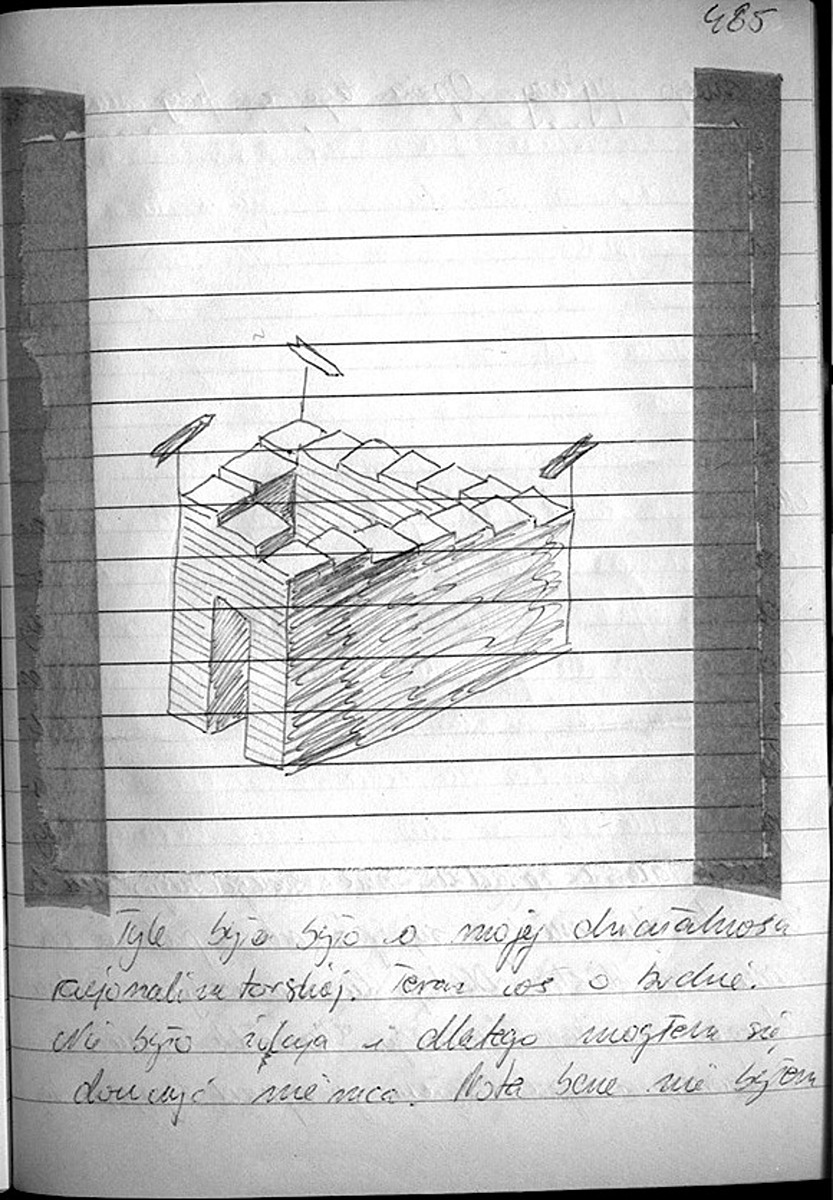 485
Tyle było było o mojej działalności
racjonalizatorskiej. Teraz coś o Budnie.
Nie było i dlatego mogłem się
niemca. Nota bene nie byłem